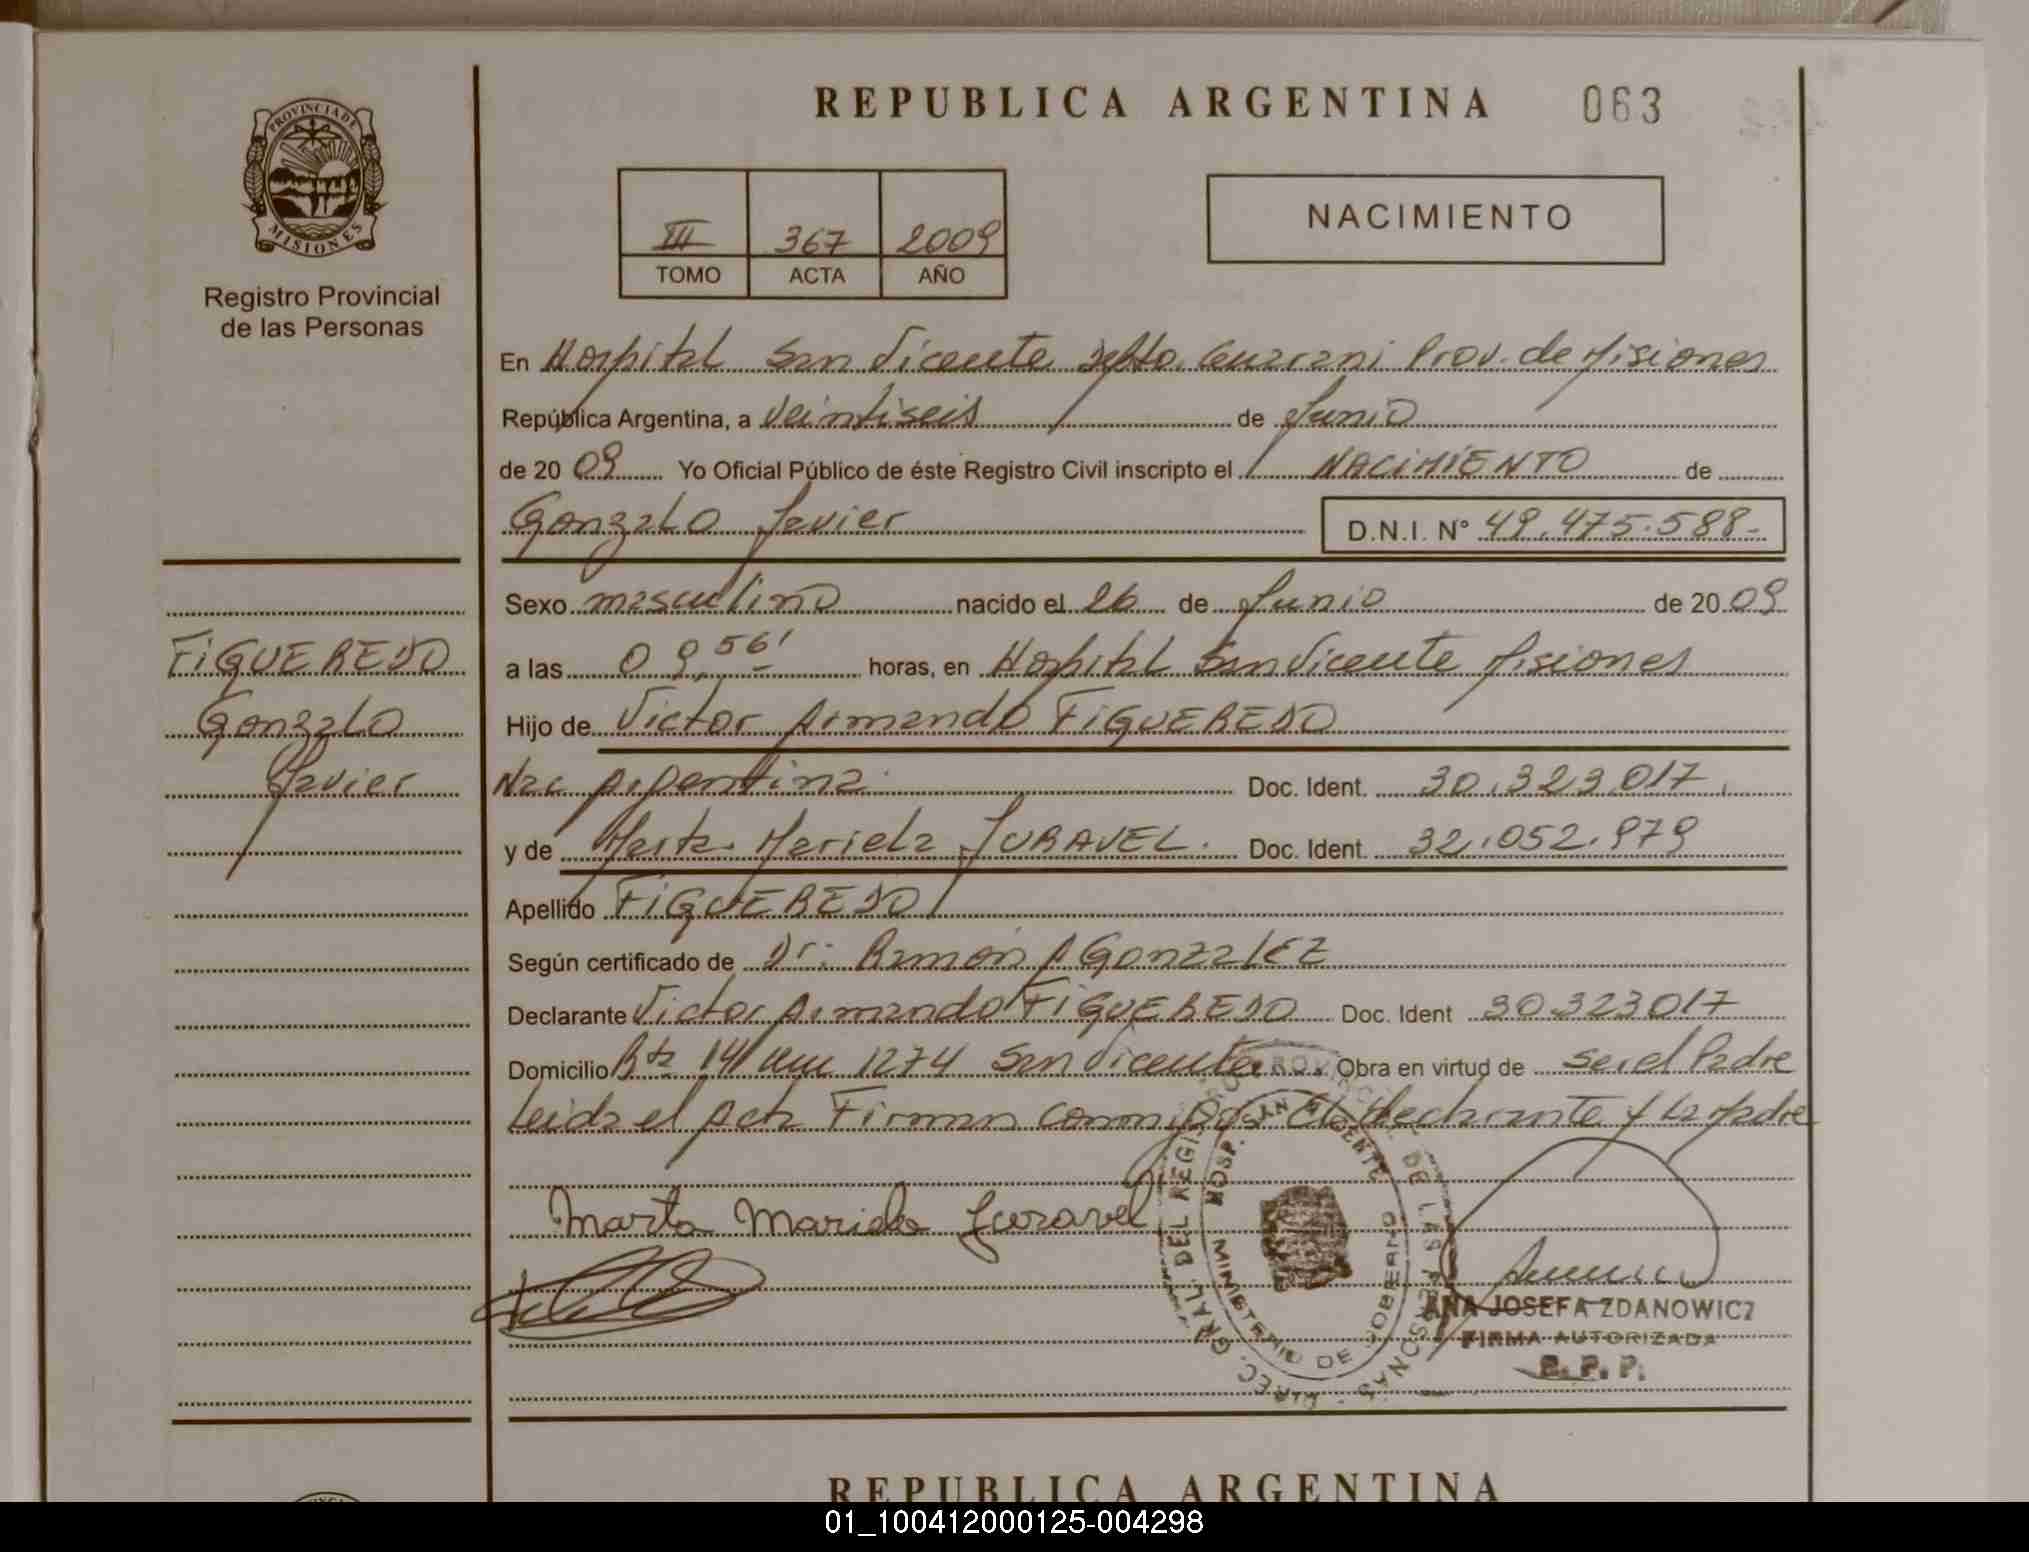 REPUBLICA ARGENTINA 063
PROVINCIA DE
MISIONES
Registro Provincial
de las Personas
III 367 2009
TOMO ACTA AÑO
NACIMIENTO
En Hospital San Vicente Dpto. Guarani Prov. de Misiones
República Argentina, a veintiseis de Junio
de 20 09 Yo Oficial Público de éste Registro Civil inscripto el NACIMIENTO de
Gonzalo Javier D.N.I. N° 49.475.588-
Sexo masculino nacido el 26 de Junio de 20 09
FIGUEREDO
Gonzalo
Javier
a las 09,56' horas, en Hospital San Vicente Misiones
Hijo de Victor Armando FIGUEREDO
Nac Argentina Doc. Ident. 30.323.017.
y de Marta Mariela JURAVEL. Doc. Ident. 32.052.979
Apellido FIGUEREDO
Según certificado de Dr: Ramón A Gonzalez
Declarante Victor Armando FIGUEREDO Doc. Ident 30323017
Domicilio Rta 14 Km 1274 San Vicente Obra en virtud de ser el Padre
Leida el Acta Firman conmigo El declarante y la Madre
Marta Mariela Juravel
HOSP. SAN VICENTE
MINISTERIO DE GOBIERNO
DIREC. GRAL. DEL REGISTRO PROVINCIAL DE LAS PERSONAS
ANA JOSEFA ZDANOWICZ
FIRMA AUTORIZADA
R. P. P.
REPUBLICA ARGENTINA
01_100412000125-004298